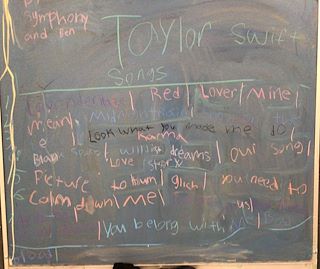 by
Symphony
and Ben
Taylor Swift
Songs
Lavender haze | Red | Lover | Mine |
mean | midnight rain | the
e | Look what you made me do |
karma
Blank Space | wildest dreams | our song |
Love story
Picture to burn | glich | You need to
Calm down | me |
us |
| You belong with me |